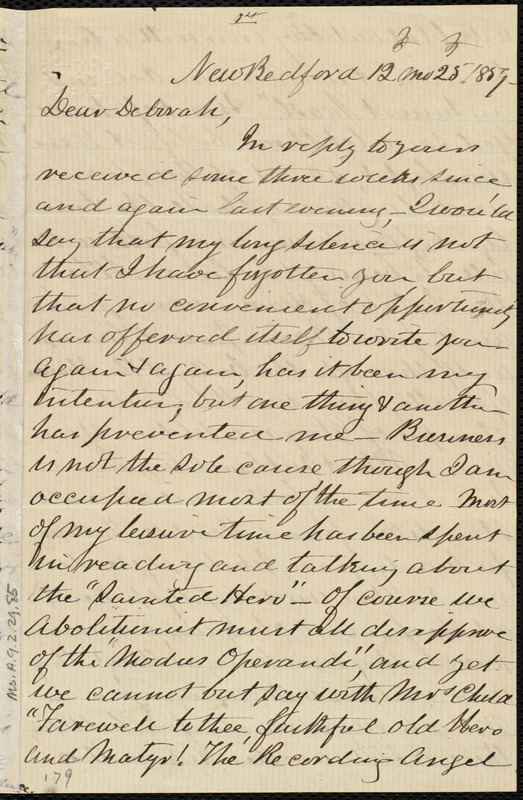 1st
New Bedford 12 mo 25 / 1859
Dear Deborah,
In reply to yours
received some three weeks since
and again last evening, I would
say, that my long silence is not
that I have forgotten you, but
that no convenient opportunity
has offerred itself to write you
again & again, has it been my
intention, but one thing & another
has prevented me — Buisness
is not the sole cause though I am
occupied most of the time Most
of my leisure time has been spent
in reading and talking about
the "Sainted Hero" — Of course we
Abolitionist must all dissapprove
of the "Modus Operandi", and yet
we cannot but say with Mrs Child
"Farewell to thee, faithful old Hero
and Matyr! The Recording Angel
Ms. A. 9. 2. 29, 85
179